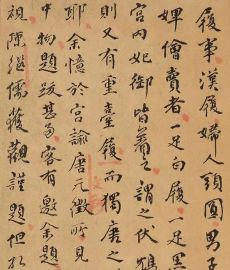 履事漢履婦人頭圓男子
婢儈賣者一足白履一足黑
宮內妃御皆著之謂之伏鳩
則又有重臺履而獨唐之
耶余憶於宮諭唐元徵所見
中物題跋甚多客有邀余題
視陳繼儒獲觀謹題但於